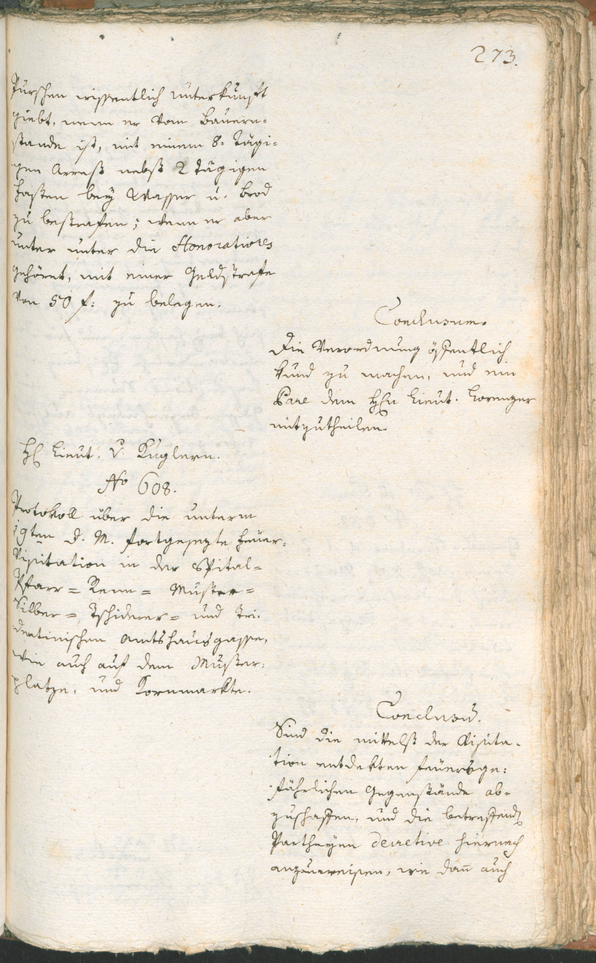 273.
Purschen wissentlich unterkunft
giebt, wenn er vom Bauern-
stande ist, mit einem 8. tägi-
gen Arrest nebst 2 tägigen
fasten bey Wasser u. brod
zu bestrafen; wenn er aber
unter unter die Honoratiores
gehöret, mit einer Geldstrafe
von 50 f: zu belegen.
Conclusum.
Die Verordnung öffentlich
kund zu machen, und ein
Pare dem HHn Lieut.
mitzutheilen.
H Lieut. v. Kuglern.
No 608.
Protokoll über die unterm
19ten d. M. fortgesezte feuer-
Visitation in der Spital=
Pfarr= Renn= Muster=
Silber=, Tschiderer= und tri-
dentinischen Amtshausgasse,
wie auch auf dem Muster-
platze, und Kornmarkte.
Conclusū.
Sind die mittelst der Visita-
tion entdekten feuersge-
fährlichen Gegenstände ab-
zuschaffen, und die betreffend
Partheyen decretive hiernach
anzuweisen, wie dañ auch